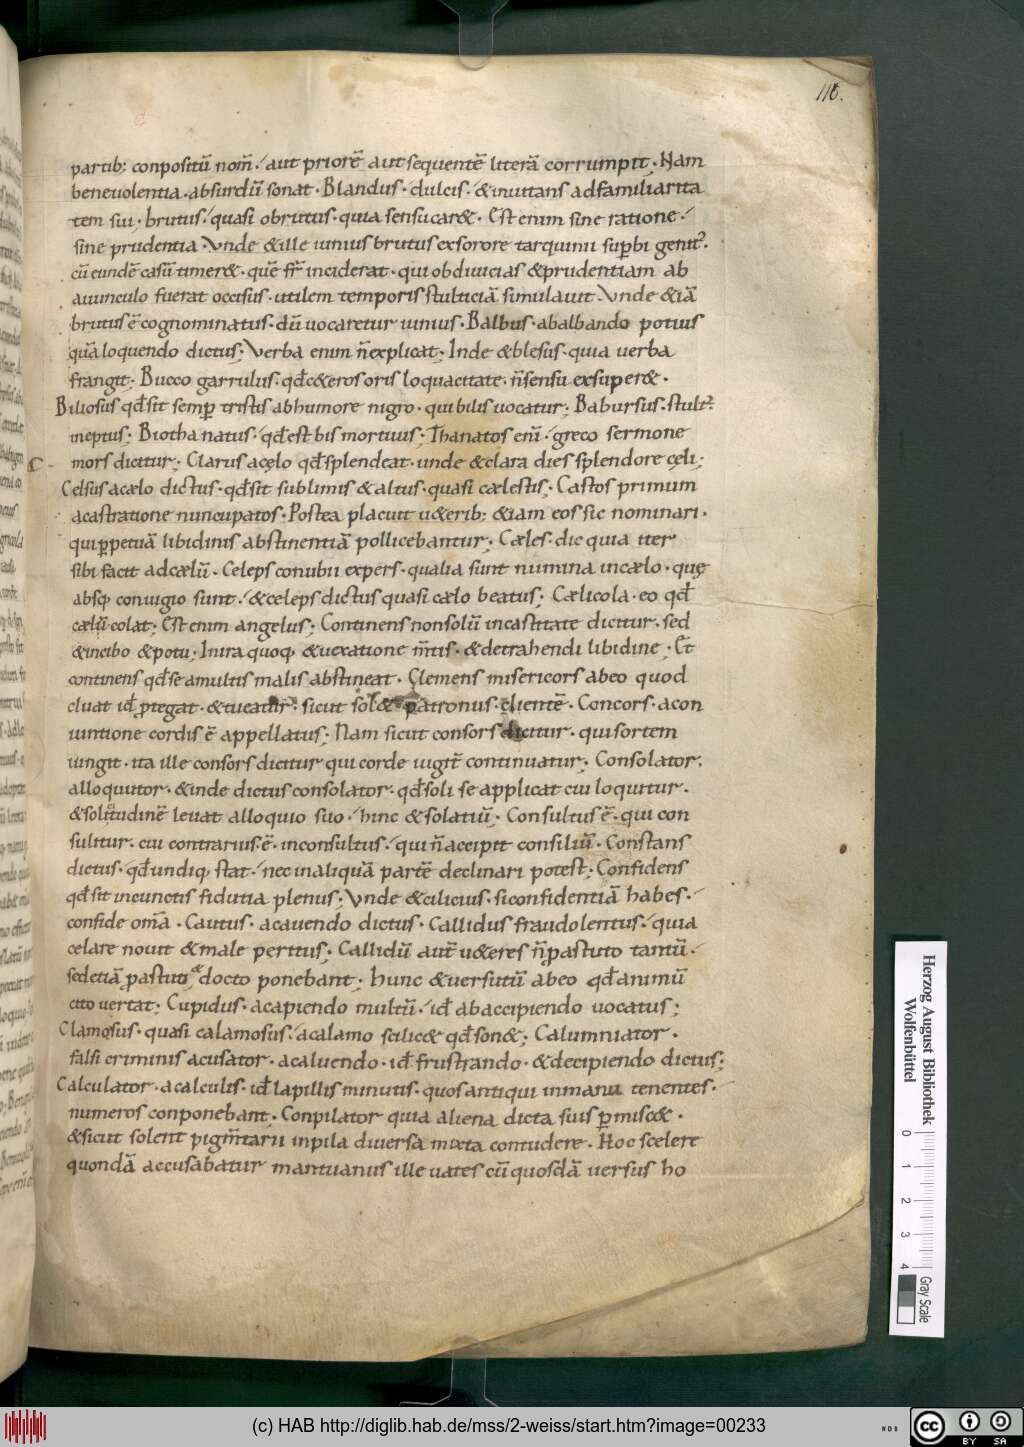 116.
partib; conpositū nom̄. aut priorē aut sequentē literā corrumpit. Nam
beneuolentia. absurdū sonat. Blandus. dulcis. &inuitans adfamiliarita
tem sui. brutus. quasi obrutus. quia sensu car&. Est enim sine ratione.
sine prudentia. Vnde &ille iunius brutus exsorore tarquinii suꝑbi genit᾽.
cū eundē casū timer&. quē fr̄ inciderat. qui ob diuicias &prudentiam ab
auunculo fuerat occisus. utilem temporis stulticiā simulauit. Vnde &iā
brutus ē cognominatus. dū uocaretur iunius. Balbus. abalbando potius
quā loquendo dictus; Verba enim n̄ explicat; Inde &blesus. quia uerba
frangit; Bucco garrulus. qđ c&eros oris loquacitate. n̄ sensu exsuper&.
Biliosus qđ sit semꝑ tristis abhumore nigro. qui bilis uocatur; Babursus. stult᾽.
ineptus; Biothanatus. qđ est bis mortuus; Thanatos eni̅. greco sermone
mors dicitur; Clarus acęlo qđ splendeat. unde &clara dies splendore cęli;
Celsus acælo dictus. qđ sit sublimis &altus. quasi cælestis; Castos primum
acastratione nuncupatos. Postea placuit u&erib; &iam eos sic nominari.
qui ꝑpetuā libidinis abstinentiā pollicebantur; Cæles. dic quia iter
sibi facit adcælū. Celeps conubii expers. qualia sunt numina incælo. quę
absq; coniugio sunt. &celeps dictus quasi cælo beatus; Cælicola. eo qđ
cælū colat; Est enim angelus; Continens non solū incastitate dicitur. sed
&incibo &potu; Inira quoq; &uexatione m̄tis. &detrahendi libidine; Et
continens qđ se amultis malis abstineat. Clemens misericors abeo quod
cluat iđ ꝓtegat. &tueatur. sicut sol& patronus. clientē. Concors. acon
iuntione cordis ē appellatus; Nam sicut consors dicitur. qui sortem
iungit. ita ille consors dicitur qui corde iugit̄ continuatur; Consolator.
alloquutor. &inde dictus consolator. qđ soli se applicat cui loquitur.
&solitudinē leuat alloquio suo. hinc &solatiū; Consultus ē. qui con
sulitur. cui contrarius ē. inconsultus. qui n̄ accipit consiliū. Constans
dictus. qđ undiq; stat. nec inaliquā partē declinari potest; Confidens
qđ sit incunctis fidutia plenus; Vnde &cilicius. si confidentiā habes.
confide om̄a. Cautus. acauendo dictus. Callidus fraudolentus. quia
celare nouit &male peritus; Callidū aut̄ u&eres n̄ ꝓastuto tantū.
sed etiā ꝓastuto docto ponebant; hunc &uersutū abeo qđ animū
cito uertat; Cupidus. acapiendo multū. iđ abaccipiendo uocatus;
Clamosus. quasi calamosus. acalamo scilic& qđ son&; Calumniator.
falsi criminis acusator. acaluendo. iđ frustrando. &decipiendo dictus;
Calculator. acalculis. iđ lapillis minutis. quos antiqui inmanu tenentes.
numeros conponebant. Conpilator quia aliena dicta suis ꝑmisc&.
&sicut solent pigm̄tarii inpila diuersa mixta contudere. Hoc scelere
quondā accusabatur mantuanus ille uates cū quosdā uersus ho
Herzog August Bibliothek
Wolfenbüttel
0 1 2 3 4
Gray Scale
(c) HAB http://diglib.hab.de/mss/2-weiss/start.htm?image=00233
cc BY SA